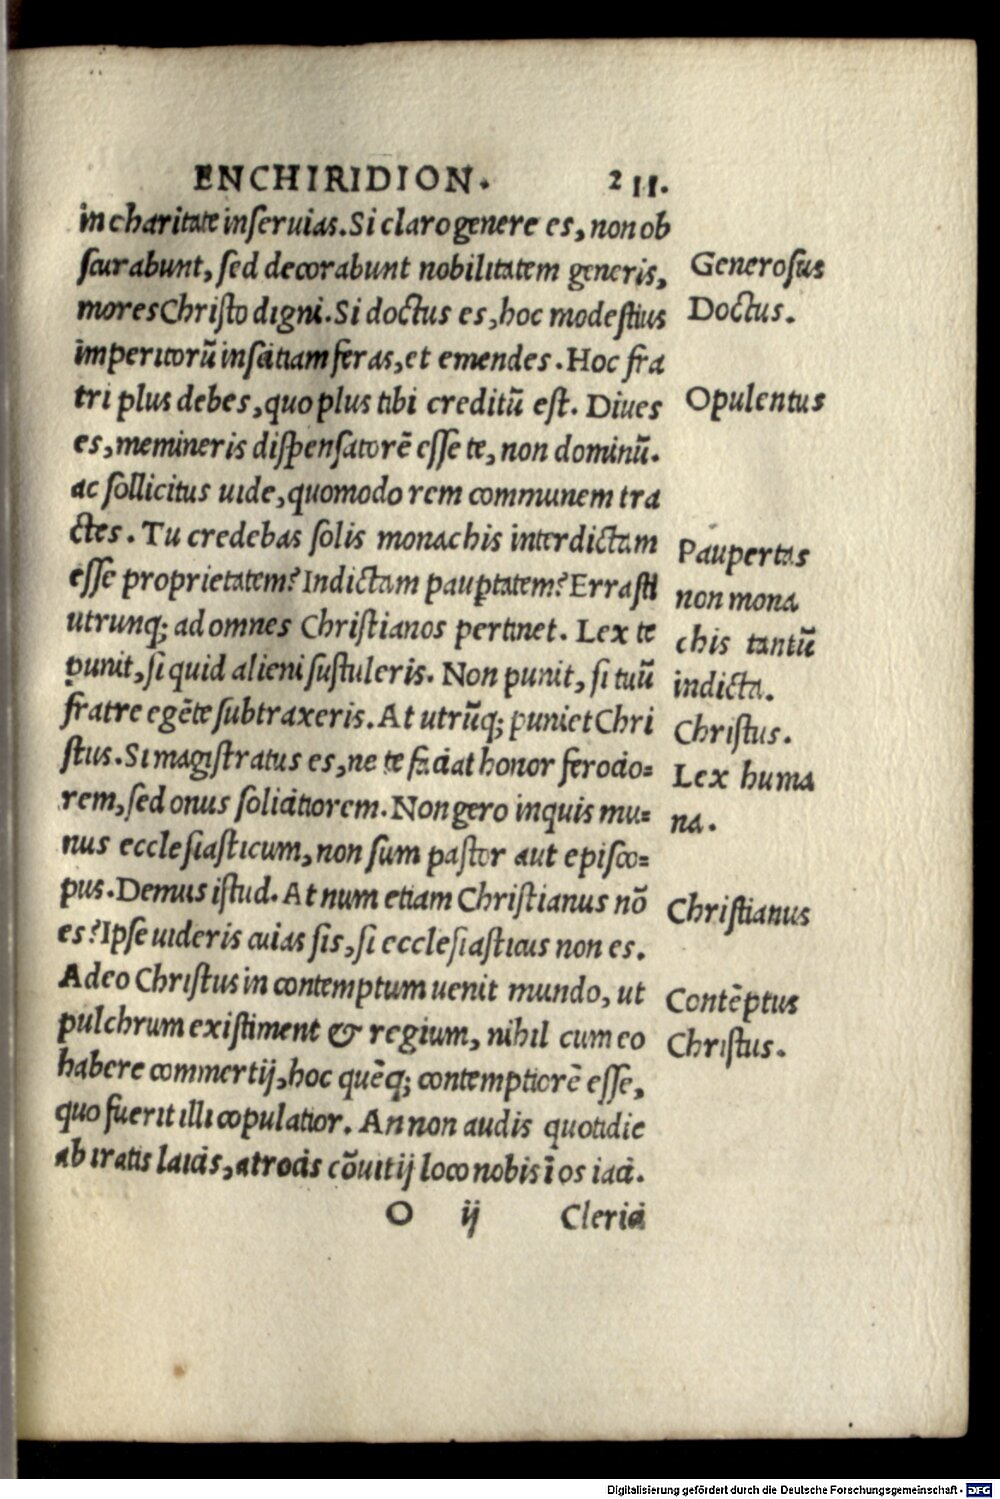 ENCHIRIDION. 211.
in charitate inſeruias. Si claro genere es, non ob
ſcurabunt, ſed decorabunt nobilitatem generis,
mores Chriſto digni. Si doctus es, hoc modeſtius
imperitorū inſcitiam feras, et emendes. Hoc fra
tri plus debes, quo plus tibi creditū eſt. Diues
es, memineris diſpenſatorē eſſe te, non dominū.
ac ſollicitus uide, quomodo rem communem tra
ctes. Tu credebas ſolis monachis interdictam
eſſe proprietatem? Indictam pauꝑtatem? Erraſti
utrunq; ad omnes Chriſtianos pertinet. Lex te
punit, ſi quid alieni ſuſtuleris. Non punit, ſi tuū
fratre egēte ſubtraxeris. At utrūq; puniet Chri
ſtus. Si magiſtratus es, ne te faciat honor ferocio=
rem, ſed onus ſolicitiorem. Non gero inquis mu=
nus eccleſiaſticum, non ſum paſtor aut epiſco=
pus. Demus iſtud. At num etiam Chriſtianus nō
es? Ipſe uideris cuias ſis, ſi eccleſiaſticus non es.
Adeo Chriſtus in contemptum uenit mundo, ut
pulchrum exiſtiment & regium, nihil cum eo
habere commertij, hoc quēq; contemptiorē eſſe,
quo fuerit illi copulatior. An non audis quotidie
ab iratis laicis, atrocis cōuitij loco nobis ī os iaci.
O ij Clerici
Generoſus
Doctus.
Opulentus
Paupertas
non mona
chis tantū
indicta.
Chriſtus.
Lex huma
na.
Chriſtianus
Contēptus
Chriſtus.
Digitalisierung gefördert durch die Deutsche Forschungsgemeinschaft - DFG